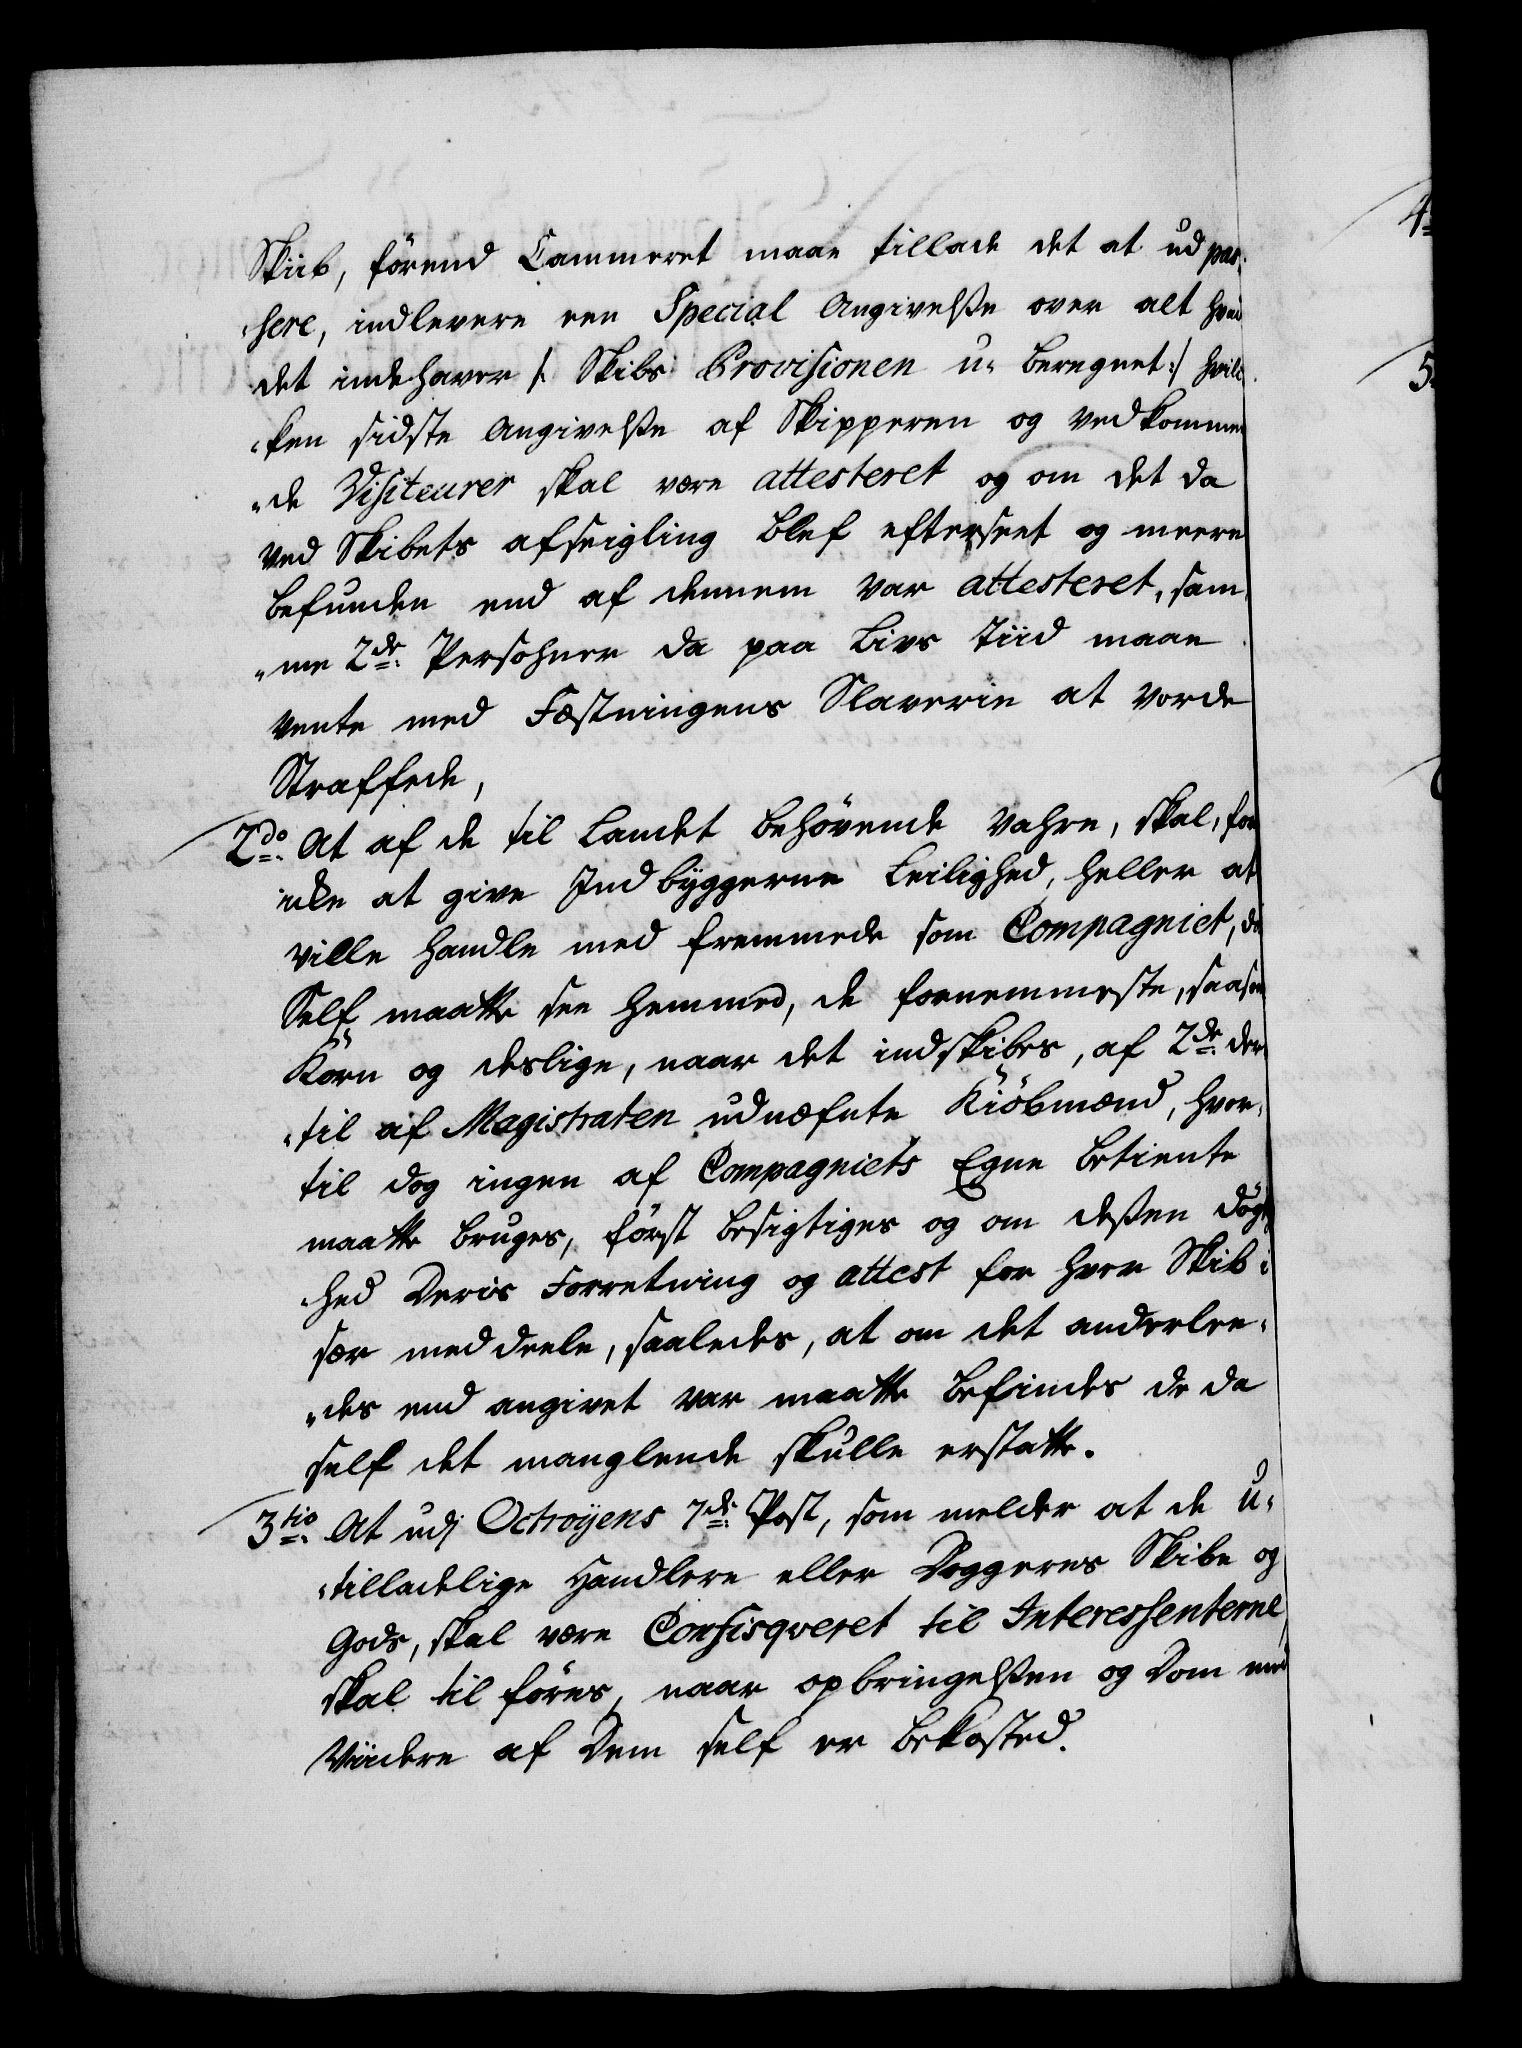 Skiib, förend Cammeret maae tillade det at ud pas-
„sere, indlevere een Special Angivelße over alt hvad
det indehaver /: Skibs Provisionen u- beregnet :/ hvil-
„ken sidste Angivelße af Skipperen og vedkommen
„de Visiteurer skal være attesteret og om det da
ved Skibets afseigling blef efterseet og meere
befunden end af dennem var attesteret, sam
„me 2de Persohner da paa Livs Tiid maae
vente med Fæstningens Slaverie at vorde
Straffede,
2do At af de til Landet behövende Vahre, skal, for
icke at give Indbyggerne Leilighed, heller at
ville handle med fremmede som Compagniet, de
Self maatte see hemmed, de fornemmeste, saasom
Korn og deslige, naar det indskibes, af 2de der
„til af Magistraten udnæfnte Kiöbmænd, hvor-
til dog ingen af Compagniets Egne betiente
maatte bruges, först besigtiges og om deßen dögt
„hed Deris Forretning og attest for hver Skib i
sær meddeele, saaledes, at om det anderlee-
„des end angivet var maatte befindes de da
self det manglende skulle erstatte.
3tio At udj Octroÿens 7de Post, som melder at de u-
„tilladelige Handlere eller Doggeres Skibe og
Gods, skal være Confisqveret til Interessenterne,
skal tilföres, naar opbringelßen og Dom med
Viidere af Dem self er bekosted.
4
5